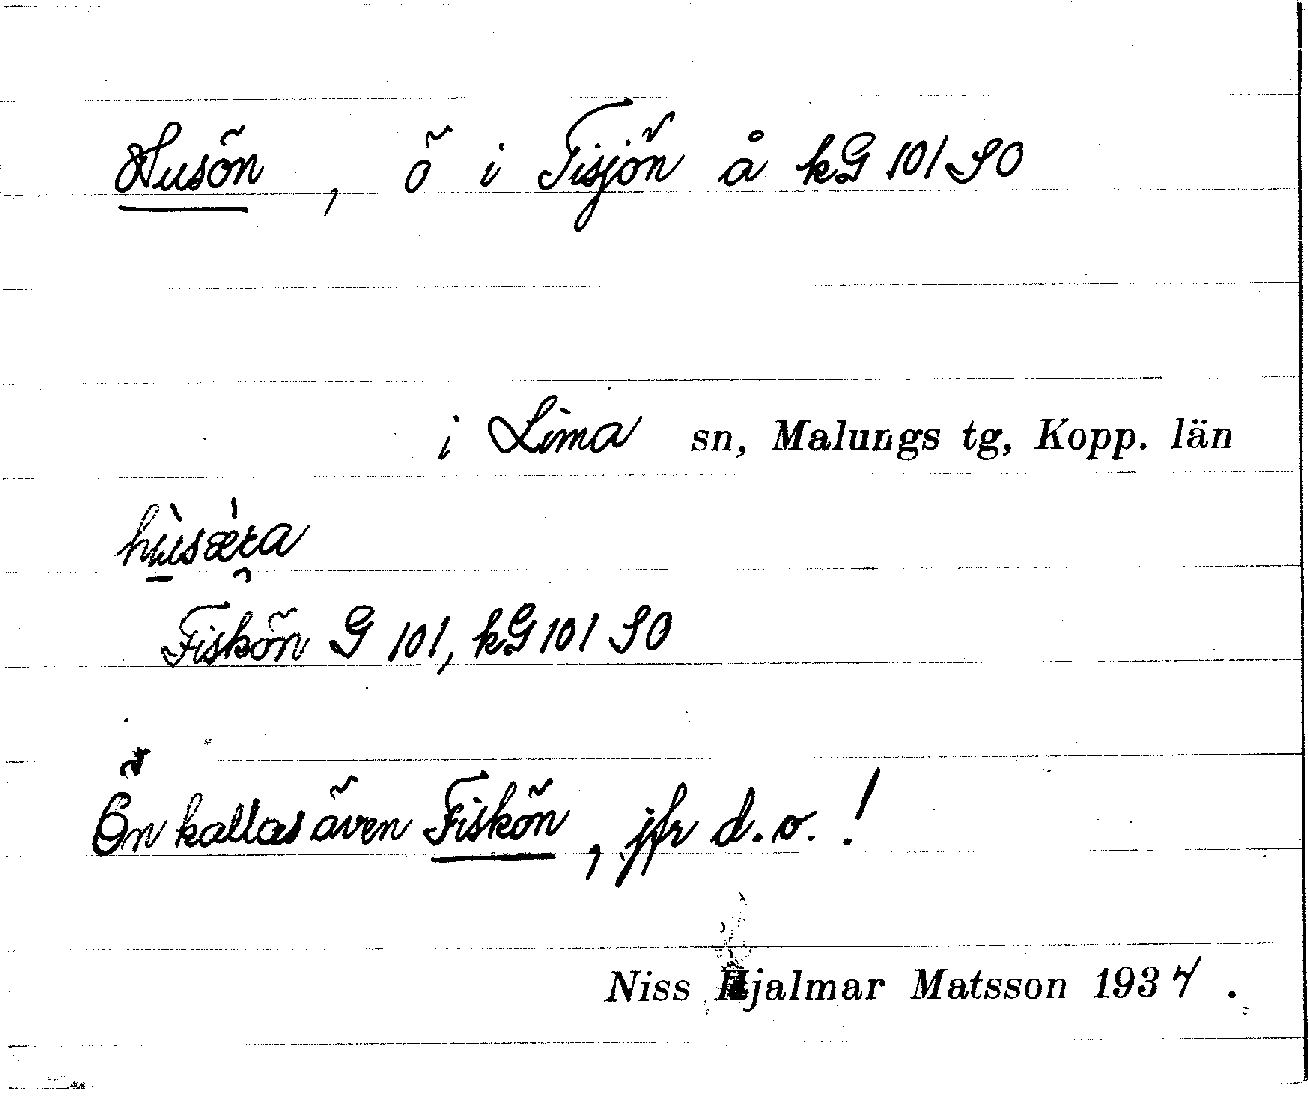 Husön, ö i Tisjön å kG 101 SO
i Lima sn, Malungs tg, Kopp. län
Fiskön G 101, kG 101 SO
Ön kallas även Fiskön, jfr d.o.!
Niss Hjalmar Matsson 1937.